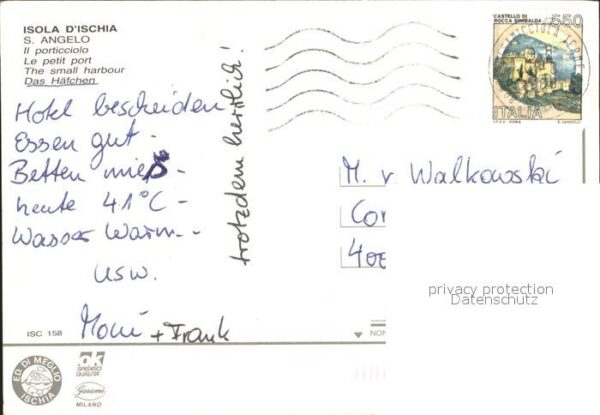 ISOLA D'ISCHIA
S. ANGELO
Il porticciolo
Le petit port
The small harbour
Das Häfchen
Hotel bescheiden
Essen gut -
Betten mies -
heute 41°C -
Wasser warm -
usw.
Moni + Frank
trotzdem herrlich!
CASTELLO DI
ROCCA SINIBALDA
550
ITALIA
I.P.Z.S. ROMA
M. v Walkowski
Cor
400
privacy protection
Datenschutz
ISC 158
NON
ED. DI MEGLIO
ISCHIA
OK
SPEDISCI
QUALITÀ
Garami
MILANO